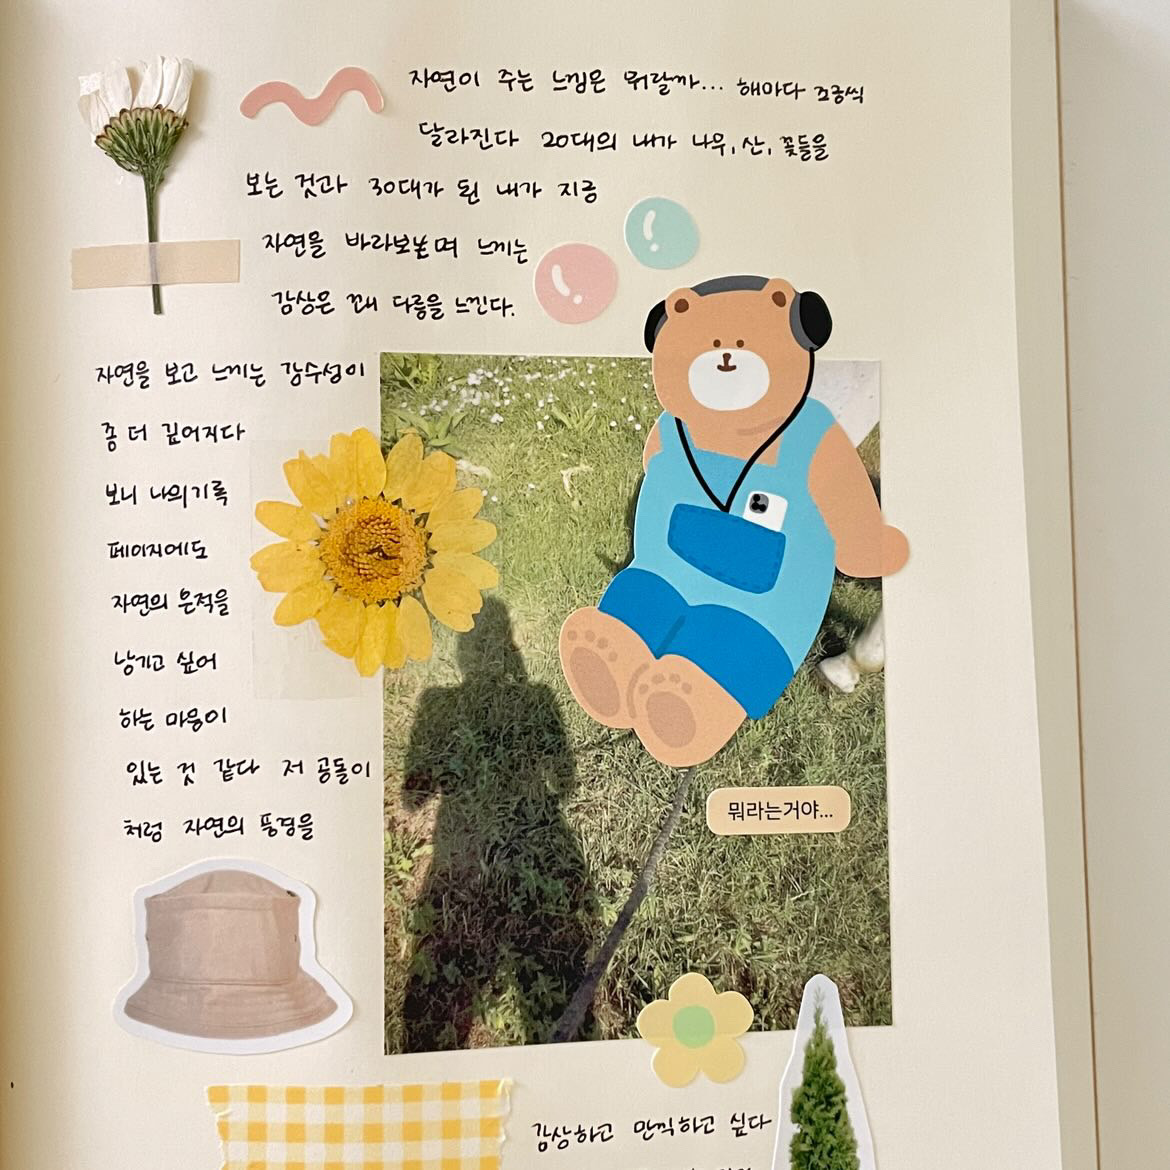 자연이 주는 느낌은 뭐랄까... 해마다 조금씩
달라진다 20대의 내가 나무, 산, 꽃들을
보는 것과 30대가 된 내가 지금
자연을 바라보며 느끼는
감상은 꽤 다름을 느낀다.
자연을 보고 느끼는 감수성이
좀 더 깊어지다
보니 나의 기록
페이지에도
자연의 흔적을
남기고 싶어
하는 마음이
있는 것 같다 저 곰돌이
처럼 자연의 풍경을
뭐라는거야...
감상하고 만끽하고 싶다